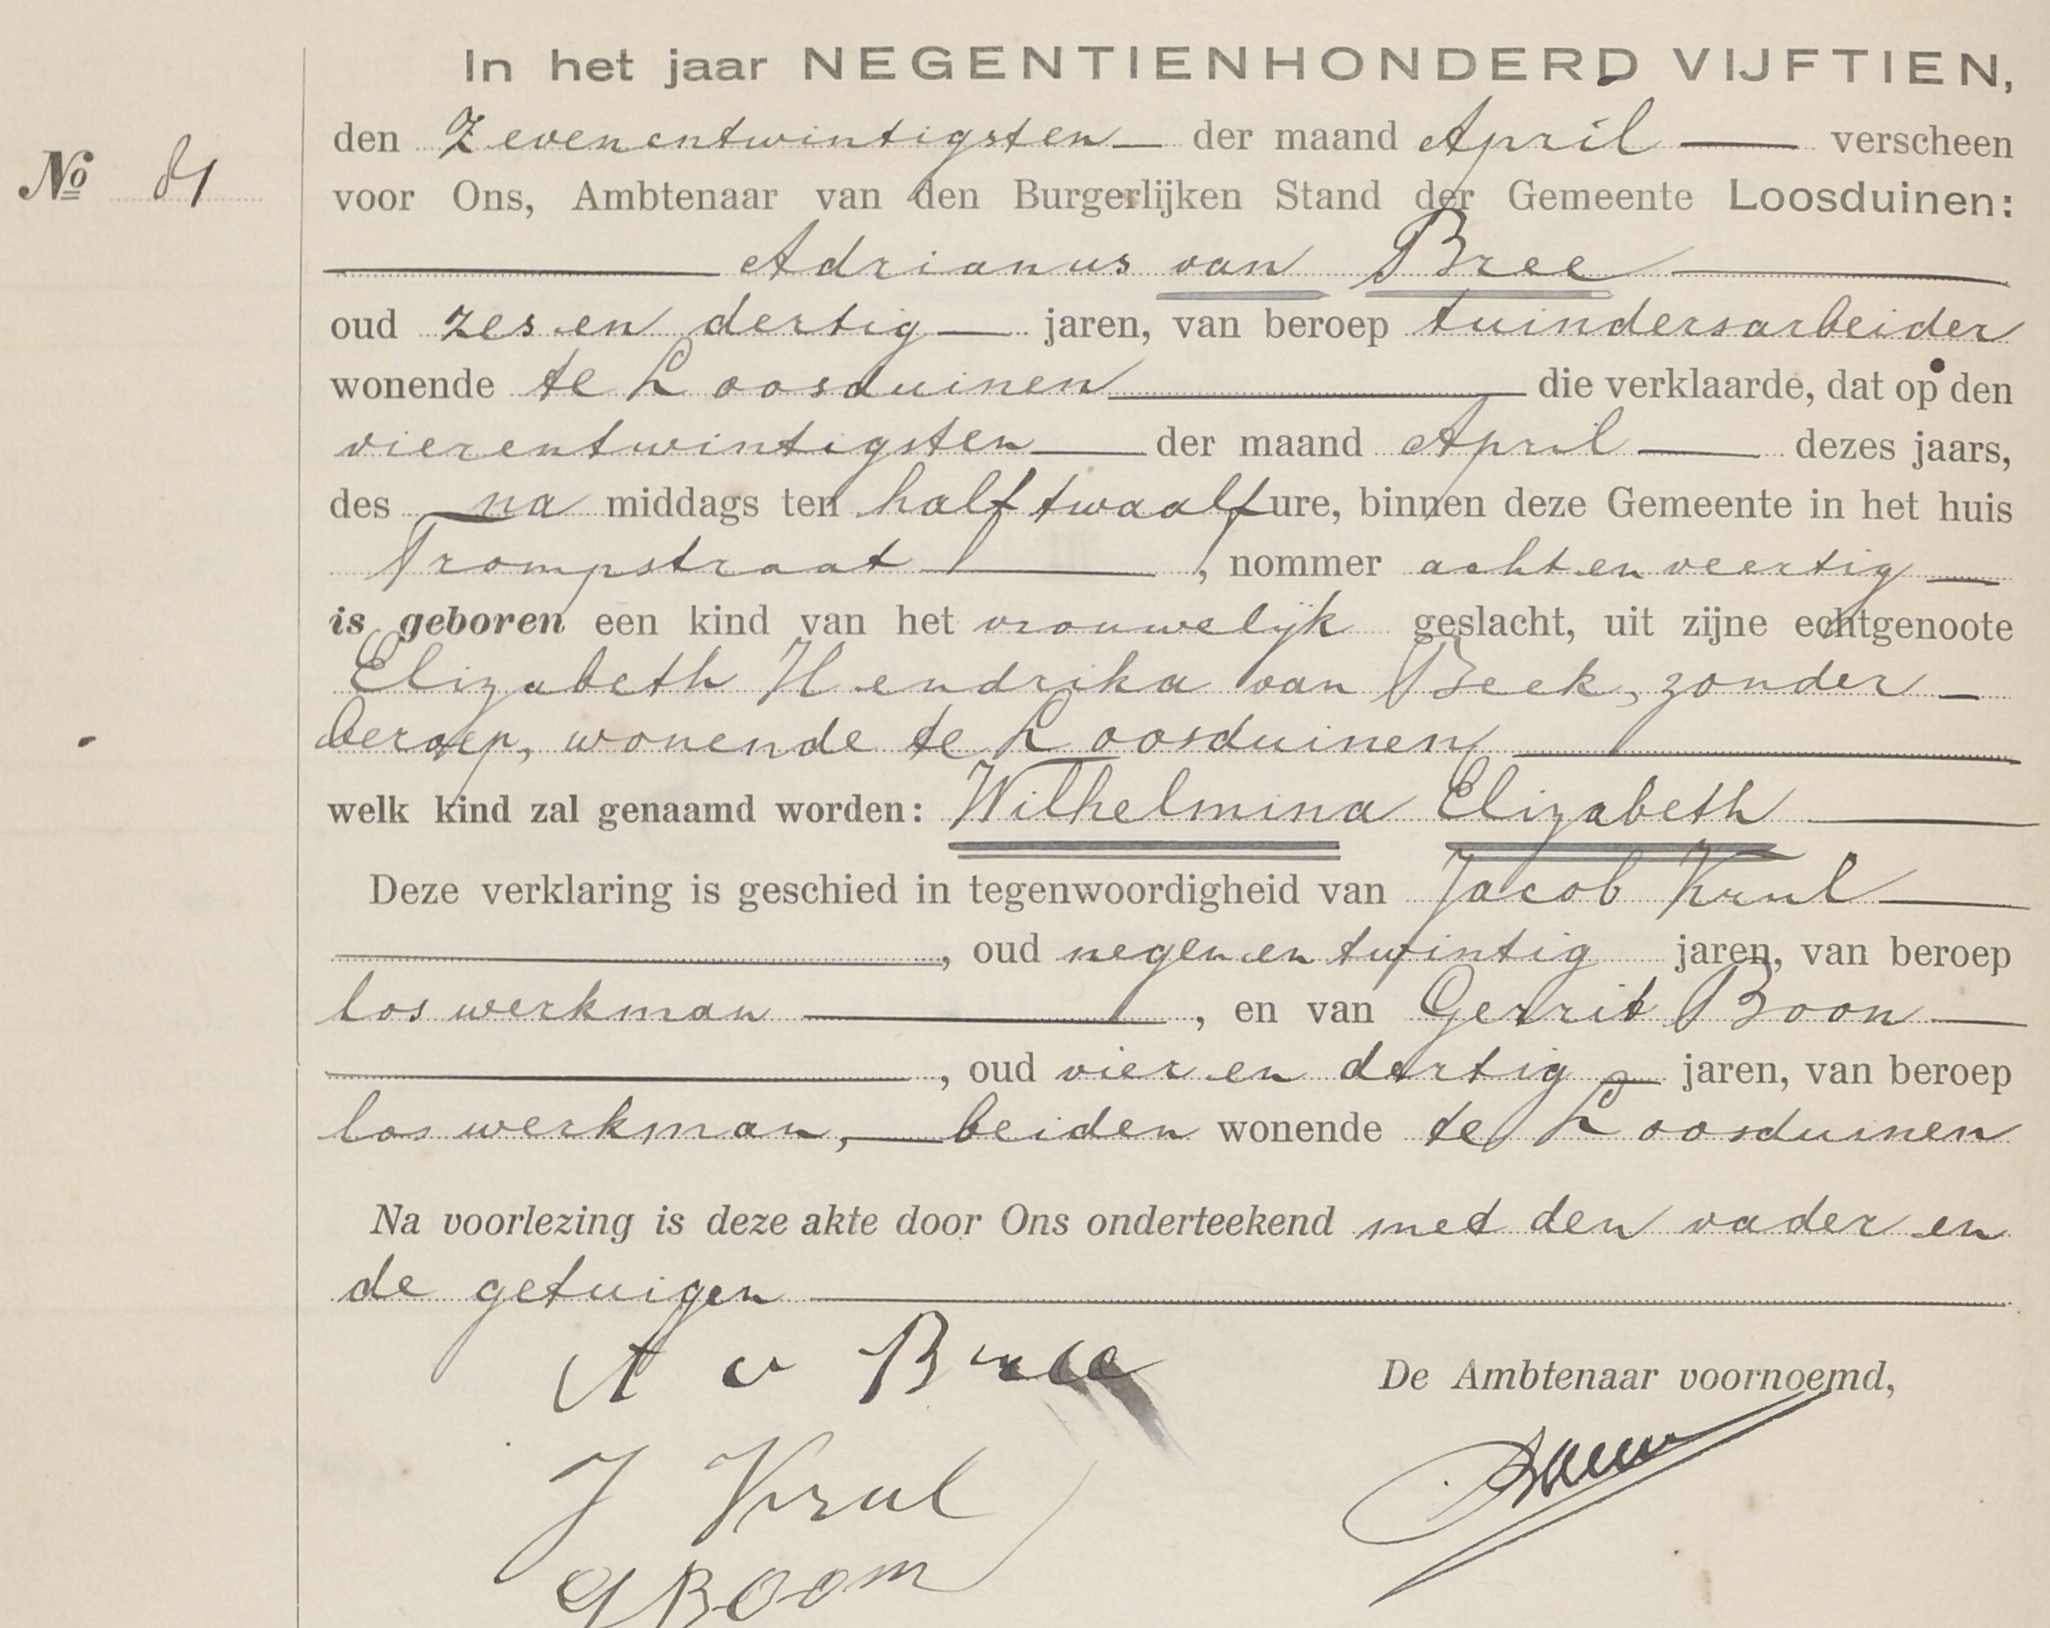 In het jaar NEGENTIENHONDERD VIJFTIEN,
den Zevenentwintigsten der maand April verscheen
No 81
voor Ons, Ambtenaar van den Burgerlijken Stand der Gemeente Loosduinen:
Adrianus van Bree
oud zes en dertig jaren, van beroep tuindersarbeider
wonende te Loosduinen die verklaarde, dat op den
vierentwintigsten der maand April dezes jaars,
des na middags ten half twaalf ure, binnen deze Gemeente in het huis
Trompstraat, nommer acht en veertig
is geboren een kind van het vrouwelijk geslacht, uit zijne echtgenoote
Elizabeth Hendrika van Beek, zonder
beroep, wonende te Loosduinen
welk kind zal genaamd worden: Wilhelmina Elizabeth
Deze verklaring is geschied in tegenwoordigheid van Jacob Krul
, oud negen en twintig jaren, van beroep
los werkman, en van Gerrit Boon
, oud vier en dertig jaren, van beroep
los werkman, beiden wonende te Loosduinen
Na voorlezing is deze akte door Ons onderteekend met den vader en
de getuigen
A v Bree
De Ambtenaar voornoemd,
J Krul
G Boom